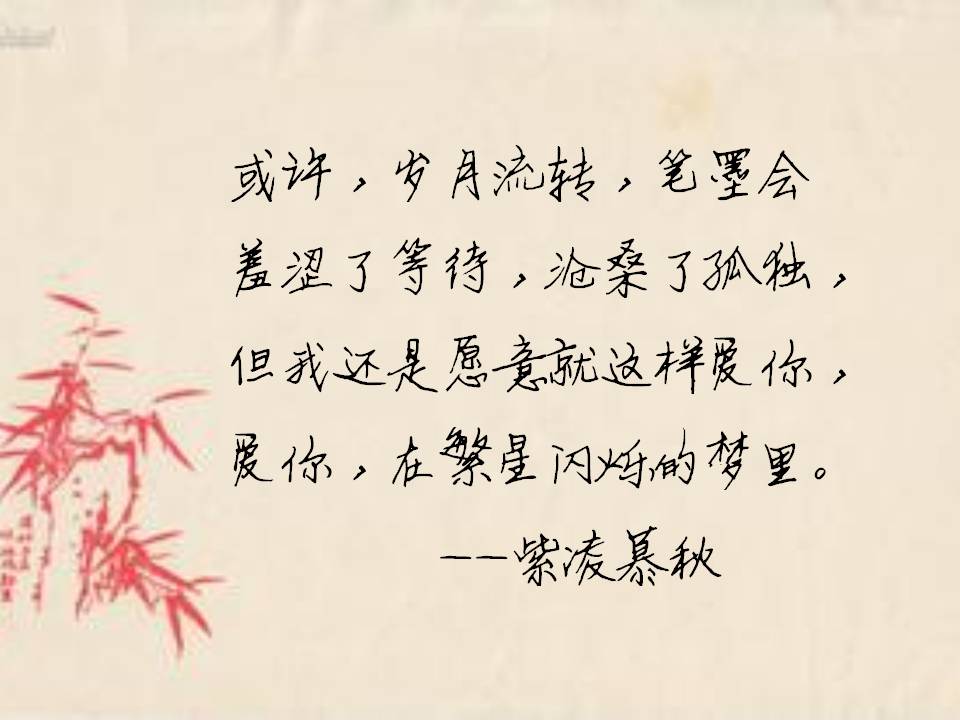 或许，岁月流转，笔墨会
羞涩了等待，沧桑了孤独，
但我还是愿意就这样爱你，
爱你，在繁星闪烁的梦里。
--紫凌慕秋